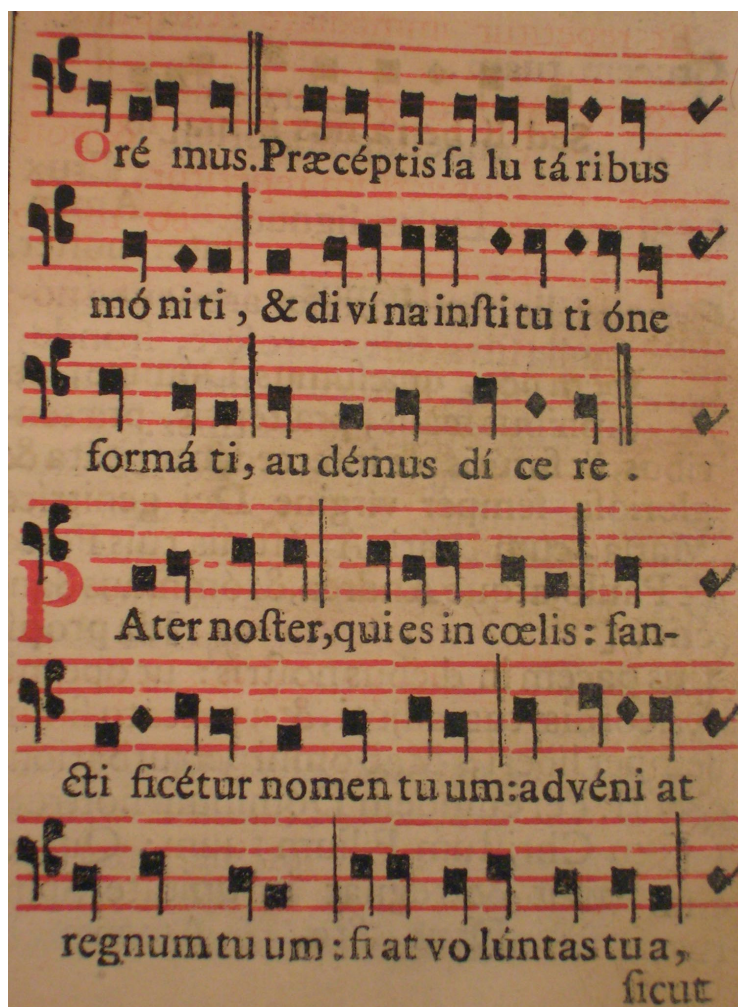 Oré mus. Præcéptis ſa lu tá ribus
mó ni ti, & di ví na inſti tu ti óne
formá ti, au démus dí ce re.
PAter noſter, qui es in cœlis: ſan-
cti ficétur nomen tu um: advéni at
regnum tu um: fi at vo lúntas tu a,
ſicut